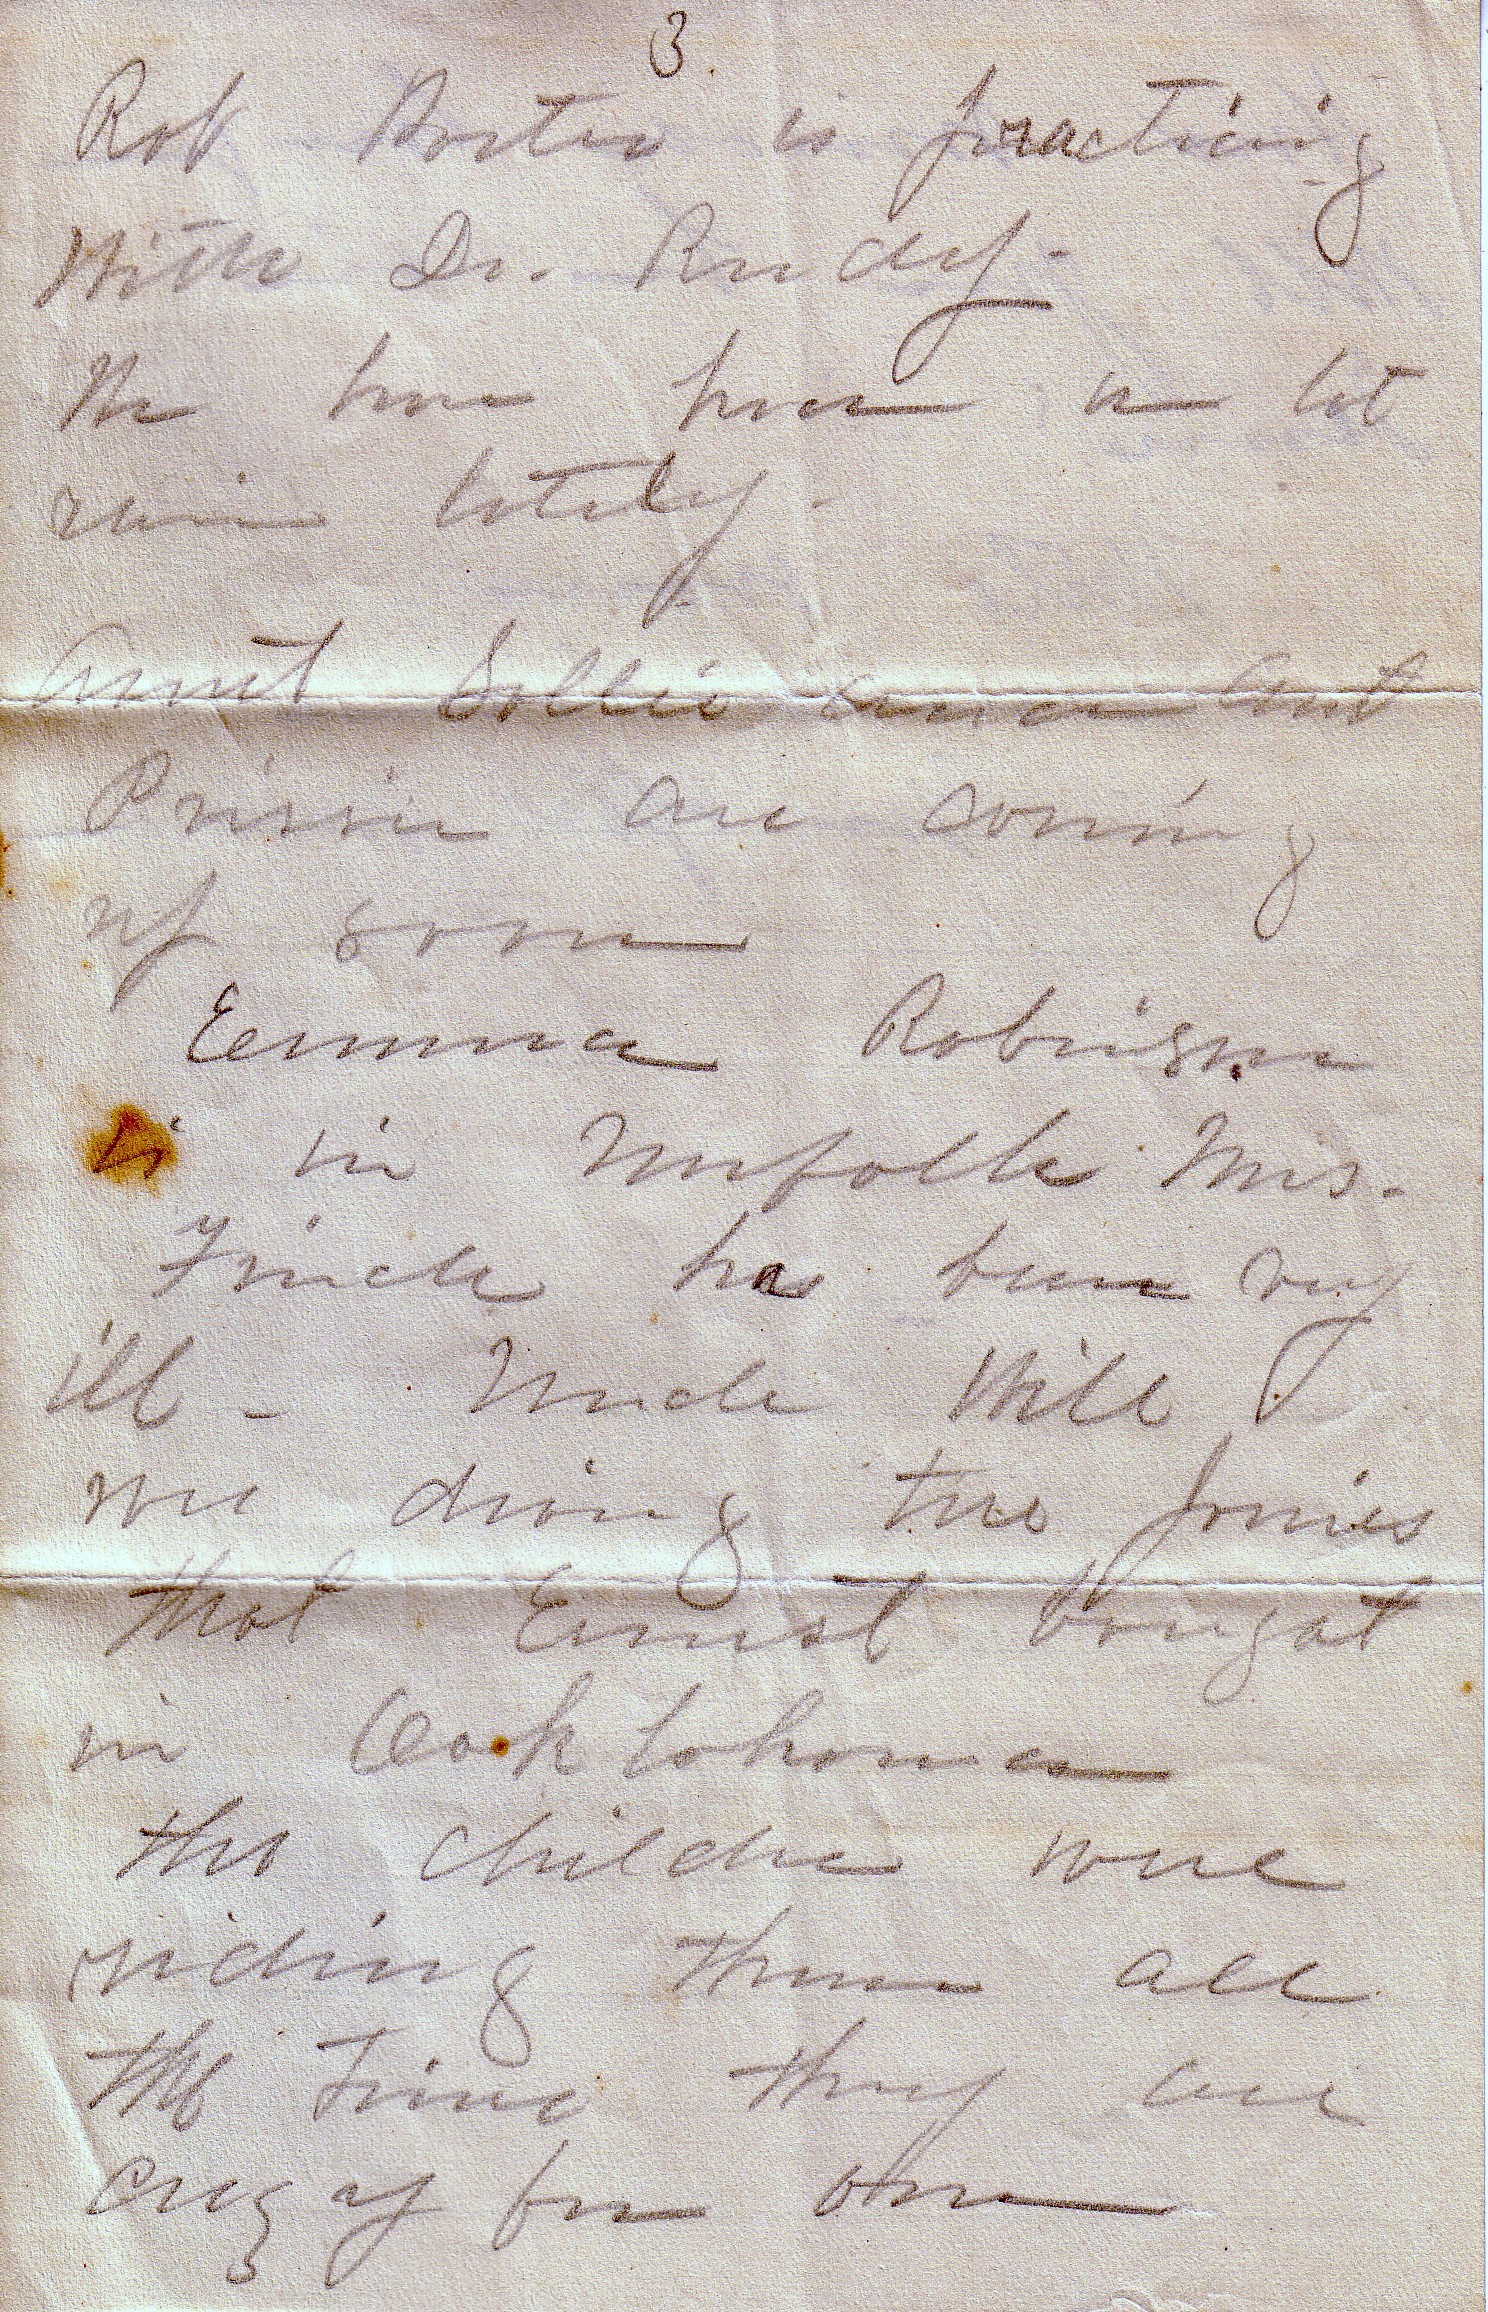 3.
Rob is practicing
With Dr. Rudy.
We have have a lot
rain lately.
Aunt Sollie and Aunt
Prissie are coming
up soon
Emma Robinson
is in Norfolk Mrs.
Finch has been very
ill - Uncle Will
was driving the ponies
that Ernest bought
in Ooklohoma
the children were
riding them all
the time they are
crazy for one